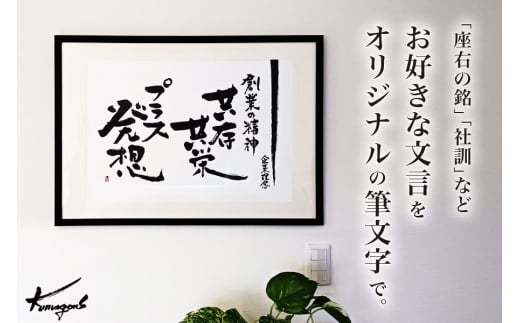 「座右の銘」「社訓」など
お好きな文言を
オリジナルの筆文字で。
創業の精神
共存
共栄
プラス
発想
企業理念
Kumagoro